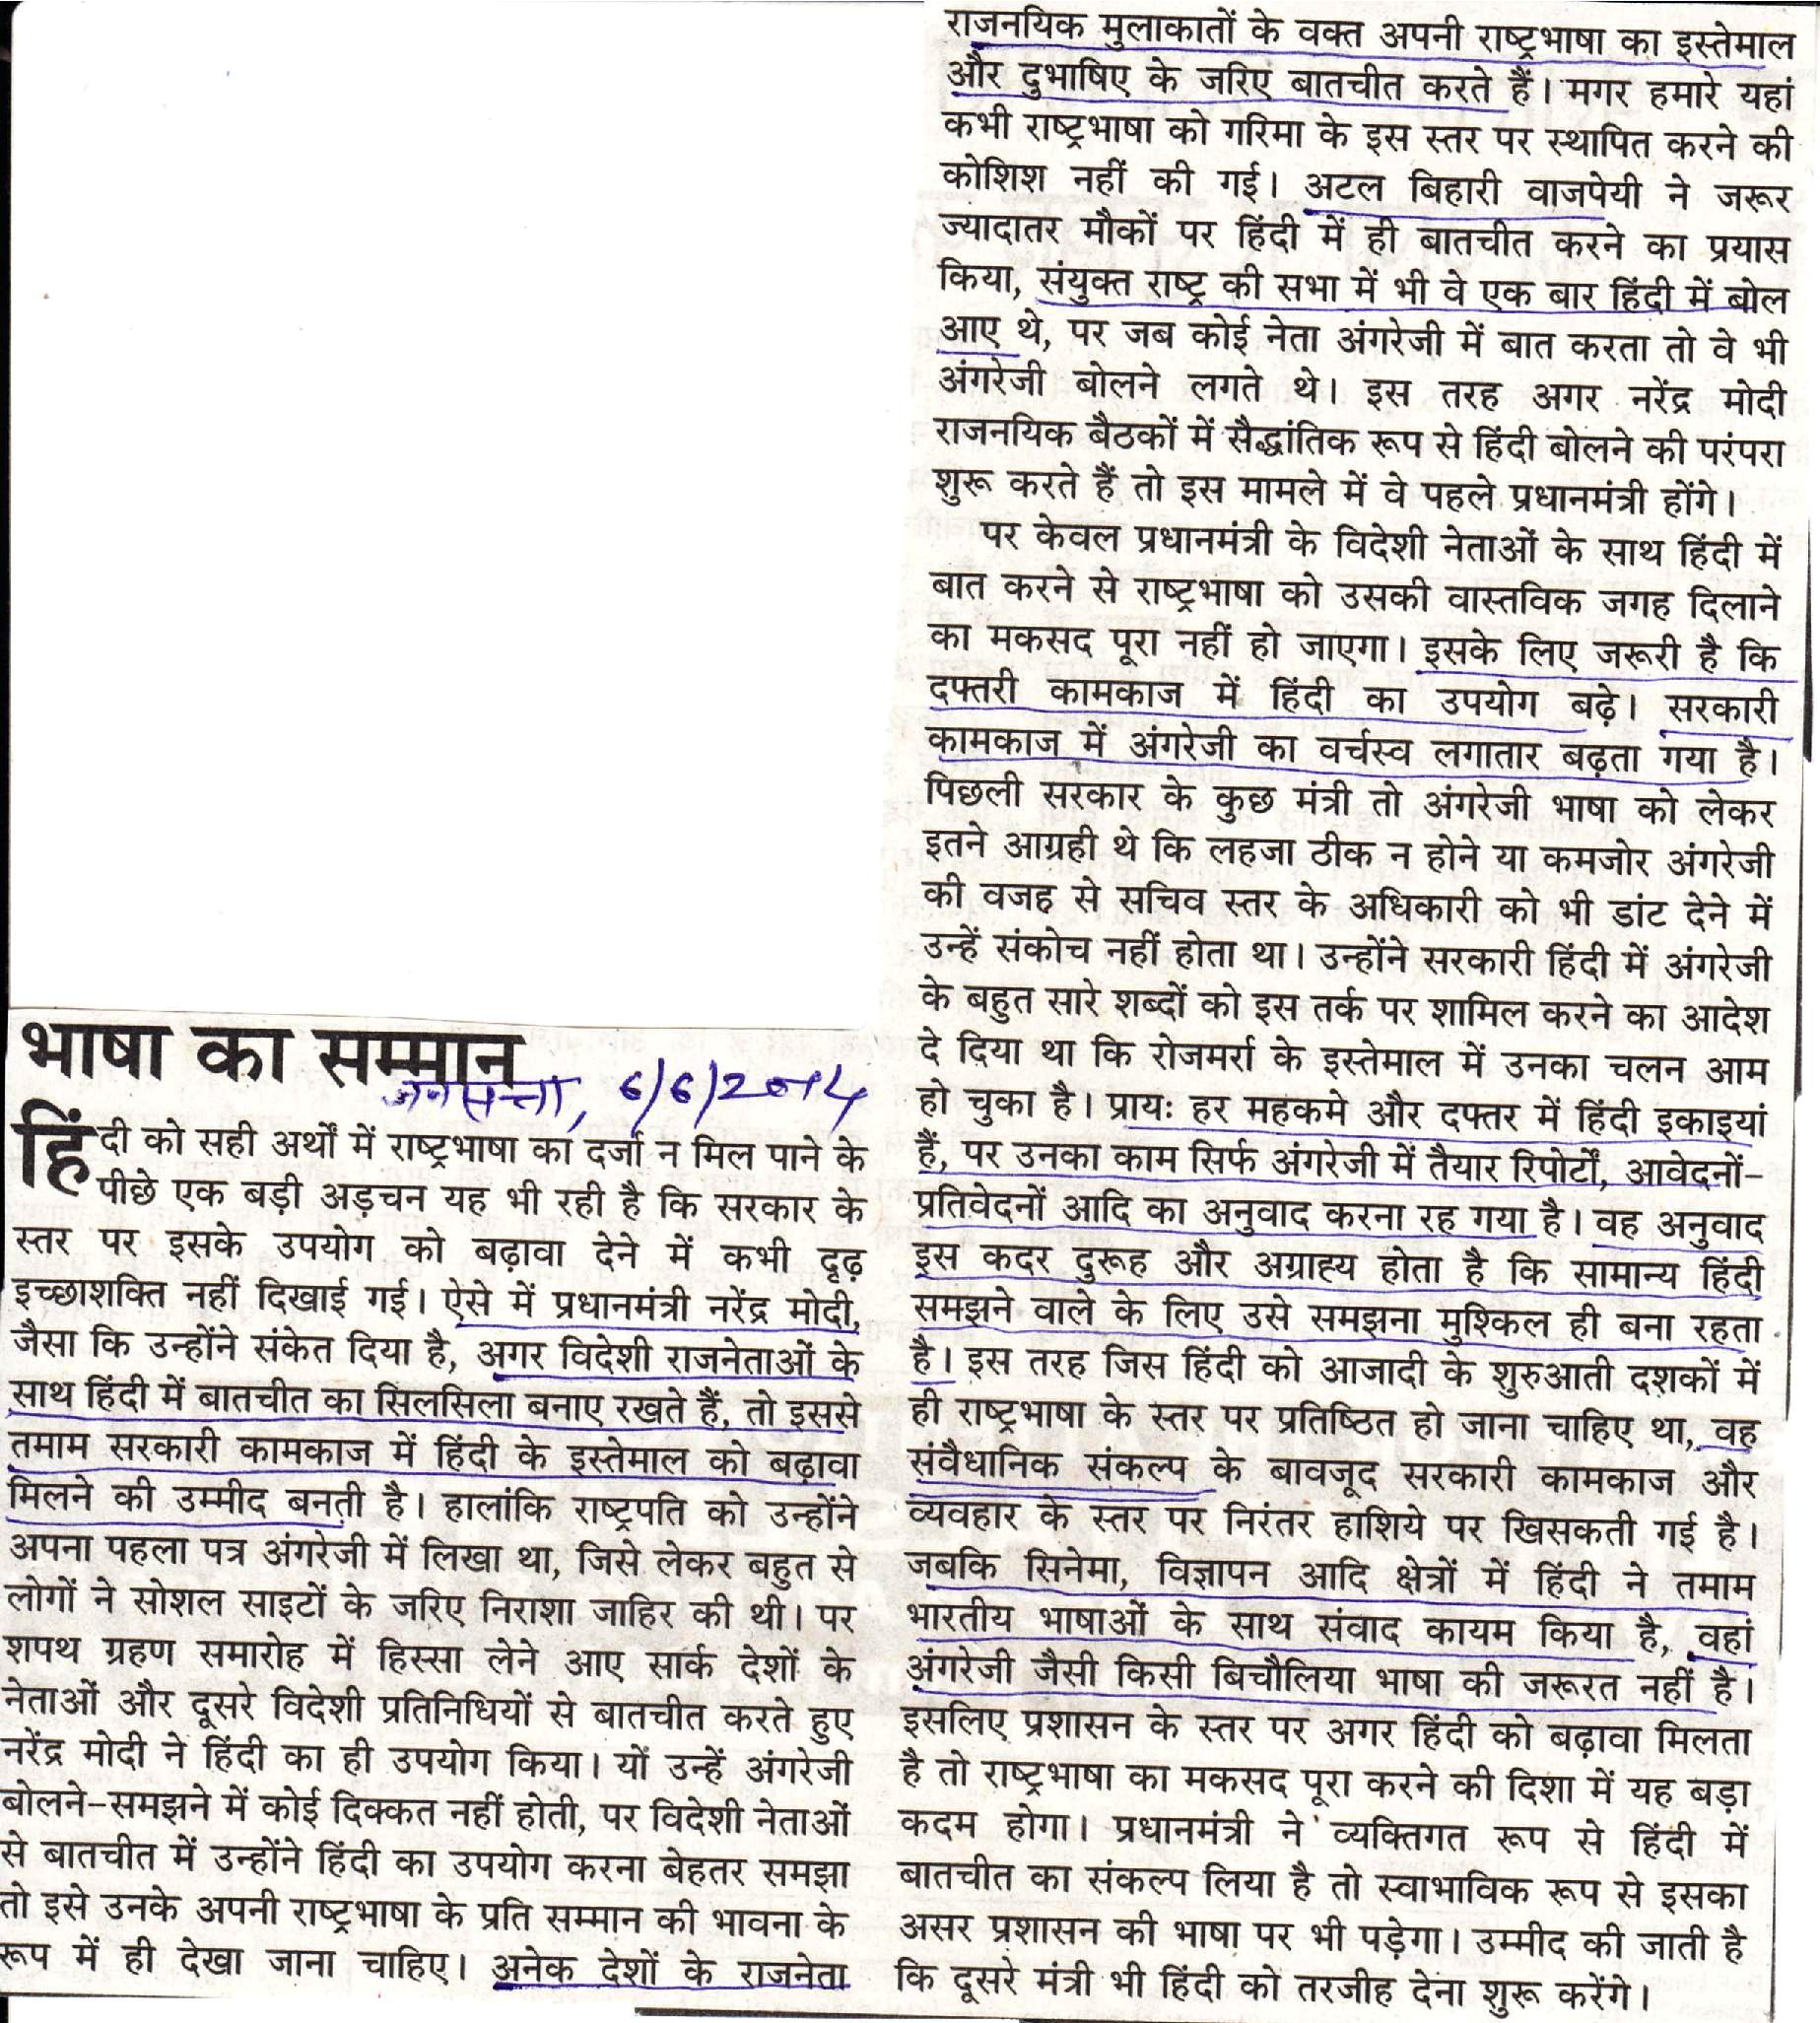 भाषा का सम्मान
जनसत्ता, 6/6/2014
हिंदी को सही अर्थों में राष्ट्रभाषा का दर्जा न मिल पाने के
पीछे एक बड़ी अड़चन यह भी रही है कि सरकार के
स्तर पर इसके उपयोग को बढ़ावा देने में कभी दृढ़
इच्छाशक्ति नहीं दिखाई गई। ऐसे में प्रधानमंत्री नरेंद्र मोदी,
जैसा कि उन्होंने संकेत दिया है, अगर विदेशी राजनेताओं के
साथ हिंदी में बातचीत का सिलसिला बनाए रखते हैं, तो इससे
तमाम सरकारी कामकाज में हिंदी के इस्तेमाल को बढ़ावा
मिलने की उम्मीद बनती है। हालांकि राष्ट्रपति को उन्होंने
अपना पहला पत्र अंगरेजी में लिखा था, जिसे लेकर बहुत से
लोगों ने सोशल साइटों के जरिए निराशा जाहिर की थी। पर
शपथ ग्रहण समारोह में हिस्सा लेने आए सार्क देशों के
नेताओं और दूसरे विदेशी प्रतिनिधियों से बातचीत करते हुए
नरेंद्र मोदी ने हिंदी का ही उपयोग किया। यों उन्हें अंगरेजी
बोलने-समझने में कोई दिक्कत नहीं होती, पर विदेशी नेताओं
से बातचीत में उन्होंने हिंदी का उपयोग करना बेहतर समझा
तो इसे उनके अपनी राष्ट्रभाषा के प्रति सम्मान की भावना के
रूप में ही देखा जाना चाहिए। अनेक देशों के राजनेता
राजनयिक मुलाकातों के वक्त अपनी राष्ट्रभाषा का इस्तेमाल
और दुभाषिए के जरिए बातचीत करते हैं। मगर हमारे यहां
कभी राष्ट्रभाषा को गरिमा के इस स्तर पर स्थापित करने की
कोशिश नहीं की गई। अटल बिहारी वाजपेयी ने जरूर
ज्यादातर मौकों पर हिंदी में ही बातचीत करने का प्रयास
किया, संयुक्त राष्ट्र की सभा में भी वे एक बार हिंदी में बोल
आए थे, पर जब कोई नेता अंगरेजी में बात करता तो वे भी
अंगरेजी बोलने लगते थे। इस तरह अगर नरेंद्र मोदी
राजनयिक बैठकों में सैद्धांतिक रूप से हिंदी बोलने की परंपरा
शुरू करते हैं तो इस मामले में वे पहले प्रधानमंत्री होंगे।
पर केवल प्रधानमंत्री के विदेशी नेताओं के साथ हिंदी में
बात करने से राष्ट्रभाषा को उसकी वास्तविक जगह दिलाने
का मकसद पूरा नहीं हो जाएगा। इसके लिए जरूरी है कि
दफ्तरी कामकाज में हिंदी का उपयोग बढ़े। सरकारी
कामकाज में अंगरेजी का वर्चस्व लगातार बढ़ता गया है।
पिछली सरकार के कुछ मंत्री तो अंगरेजी भाषा को लेकर
इतने आग्रही थे कि लहजा ठीक न होने या कमजोर अंगरेजी
की वजह से सचिव स्तर के अधिकारी को भी डांट देने में
उन्हें संकोच नहीं होता था। उन्होंने सरकारी हिंदी में अंगरेजी
के बहुत सारे शब्दों को इस तर्क पर शामिल करने का आदेश
दे दिया था कि रोजमर्रा के इस्तेमाल में उनका चलन आम
हो चुका है। प्रायः हर महकमे और दफ्तर में हिंदी इकाइयां
हैं, पर उनका काम सिर्फ अंगरेजी में तैयार रिपोर्टों, आवेदनों-
प्रतिवेदनों आदि का अनुवाद करना रह गया है। वह अनुवाद
इस कदर दुरूह और अग्राह्य होता है कि सामान्य हिंदी
समझने वाले के लिए उसे समझना मुश्किल ही बना रहता
है। इस तरह जिस हिंदी को आजादी के शुरुआती दशकों में
ही राष्ट्रभाषा के स्तर पर प्रतिष्ठित हो जाना चाहिए था, वह
संवैधानिक संकल्प के बावजूद सरकारी कामकाज और
व्यवहार के स्तर पर निरंतर हाशिये पर खिसकती गई है।
जबकि सिनेमा, विज्ञापन आदि क्षेत्रों में हिंदी ने तमाम
भारतीय भाषाओं के साथ संवाद कायम किया है, वहां
अंगरेजी जैसी किसी बिचौलिया भाषा की जरूरत नहीं है।
इसलिए प्रशासन के स्तर पर अगर हिंदी को बढ़ावा मिलता
है तो राष्ट्रभाषा का मकसद पूरा करने की दिशा में यह बड़ा
कदम होगा। प्रधानमंत्री ने व्यक्तिगत रूप से हिंदी में
बातचीत का संकल्प लिया है तो स्वाभाविक रूप से इसका
असर प्रशासन की भाषा पर भी पड़ेगा। उम्मीद की जाती है
कि दूसरे मंत्री भी हिंदी को तरजीह देना शुरू करेंगे।